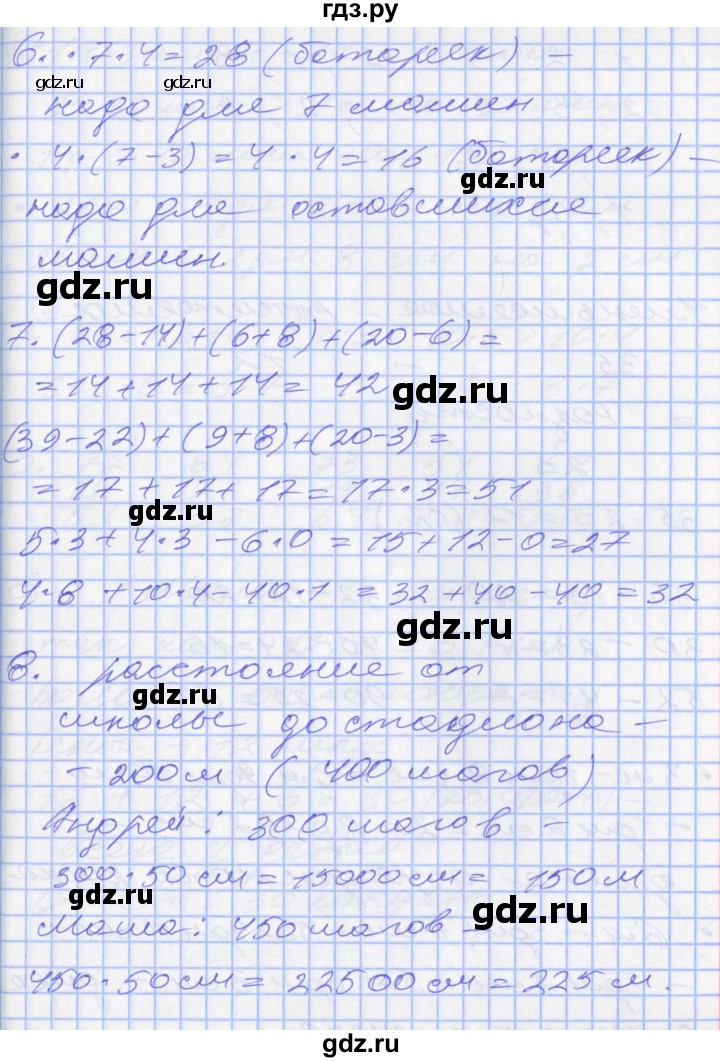 гдз.ру
6. • 7·4=28 (батареек) –
надо для 7 машин
• 4·(7-3)=4·4=16 (батареек) –
надо для оставшихся
машин.
7. (28-14)+(6+8)+(20-6)=
=14+14+14=42
(39-22)+(9+8)+(20-3)=
=17+17+17=17·3=51
5·3+4·3-6·0=15+12-0=27
4·8+10·4-40·1=32+40-40=32
8. расстояние от
школы до стадиона –
– 200м (400 шагов)
Андрей: 300 шагов –
300·50см=15000см=150м
Маша: 450 шагов –
450·50см=22500см=225м.
gdz.ru
gdz.ru
gdz.ru
gdz.ru
gdz.ru
gdz.ru
gdz.ru
gdz.ru
gdz.ru
gdz.ru
gdz.ru
gdz.ru
гдз.ру